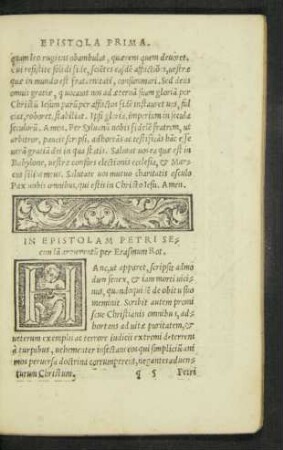 EPISTOLA PRIMA.
quam leo rugiens obambulat, quærens quem deuoret.
cui resistite solidi fide, scientes easdē afflictiōes, uestræ
quæ in mundo est fraternitati, consummari. Sed deus
omnis gratiæ, qui uocauit nos ad æternā suam gloriā per
Christū Iesum parū per afflictos
uos, roboret, stabiliat. Ipsi gloria, imperium in secula
seculorū. Amen. Per Syluanū uobis fidelē fratrem, ut
arbitror, paucis scripsi, adhortās ac testificās hāc esse
uerā gratiā dei in qua statis. Salutat uos ea quæ est in
Babylone, uestræ consors electionis ecclesia, & Marcus
filius meus. Salutate uos mutuo charitatis osculo
Pax uobis omnibus, qui estis in Christo Iesu. Amen.
IN EPISTOLAM PETRI SE-
per Erasmum Rot.
HAnc, ut apparet, scripsit admodum
senex, & iam morti uicinus,
quandoquidē de obitu suo
meminit. Scribit autem promiscue
Christianis omnibus, adhortans
ad uitæ puritatem, &
ueterum exemplis ac terrore iudicii extremi deterrens
à turpibus, uehementer insectans eos qui simpliciū animos
peruersa doctrina corrumperent, negantes aduenturum
Christum,
q 5 Petri